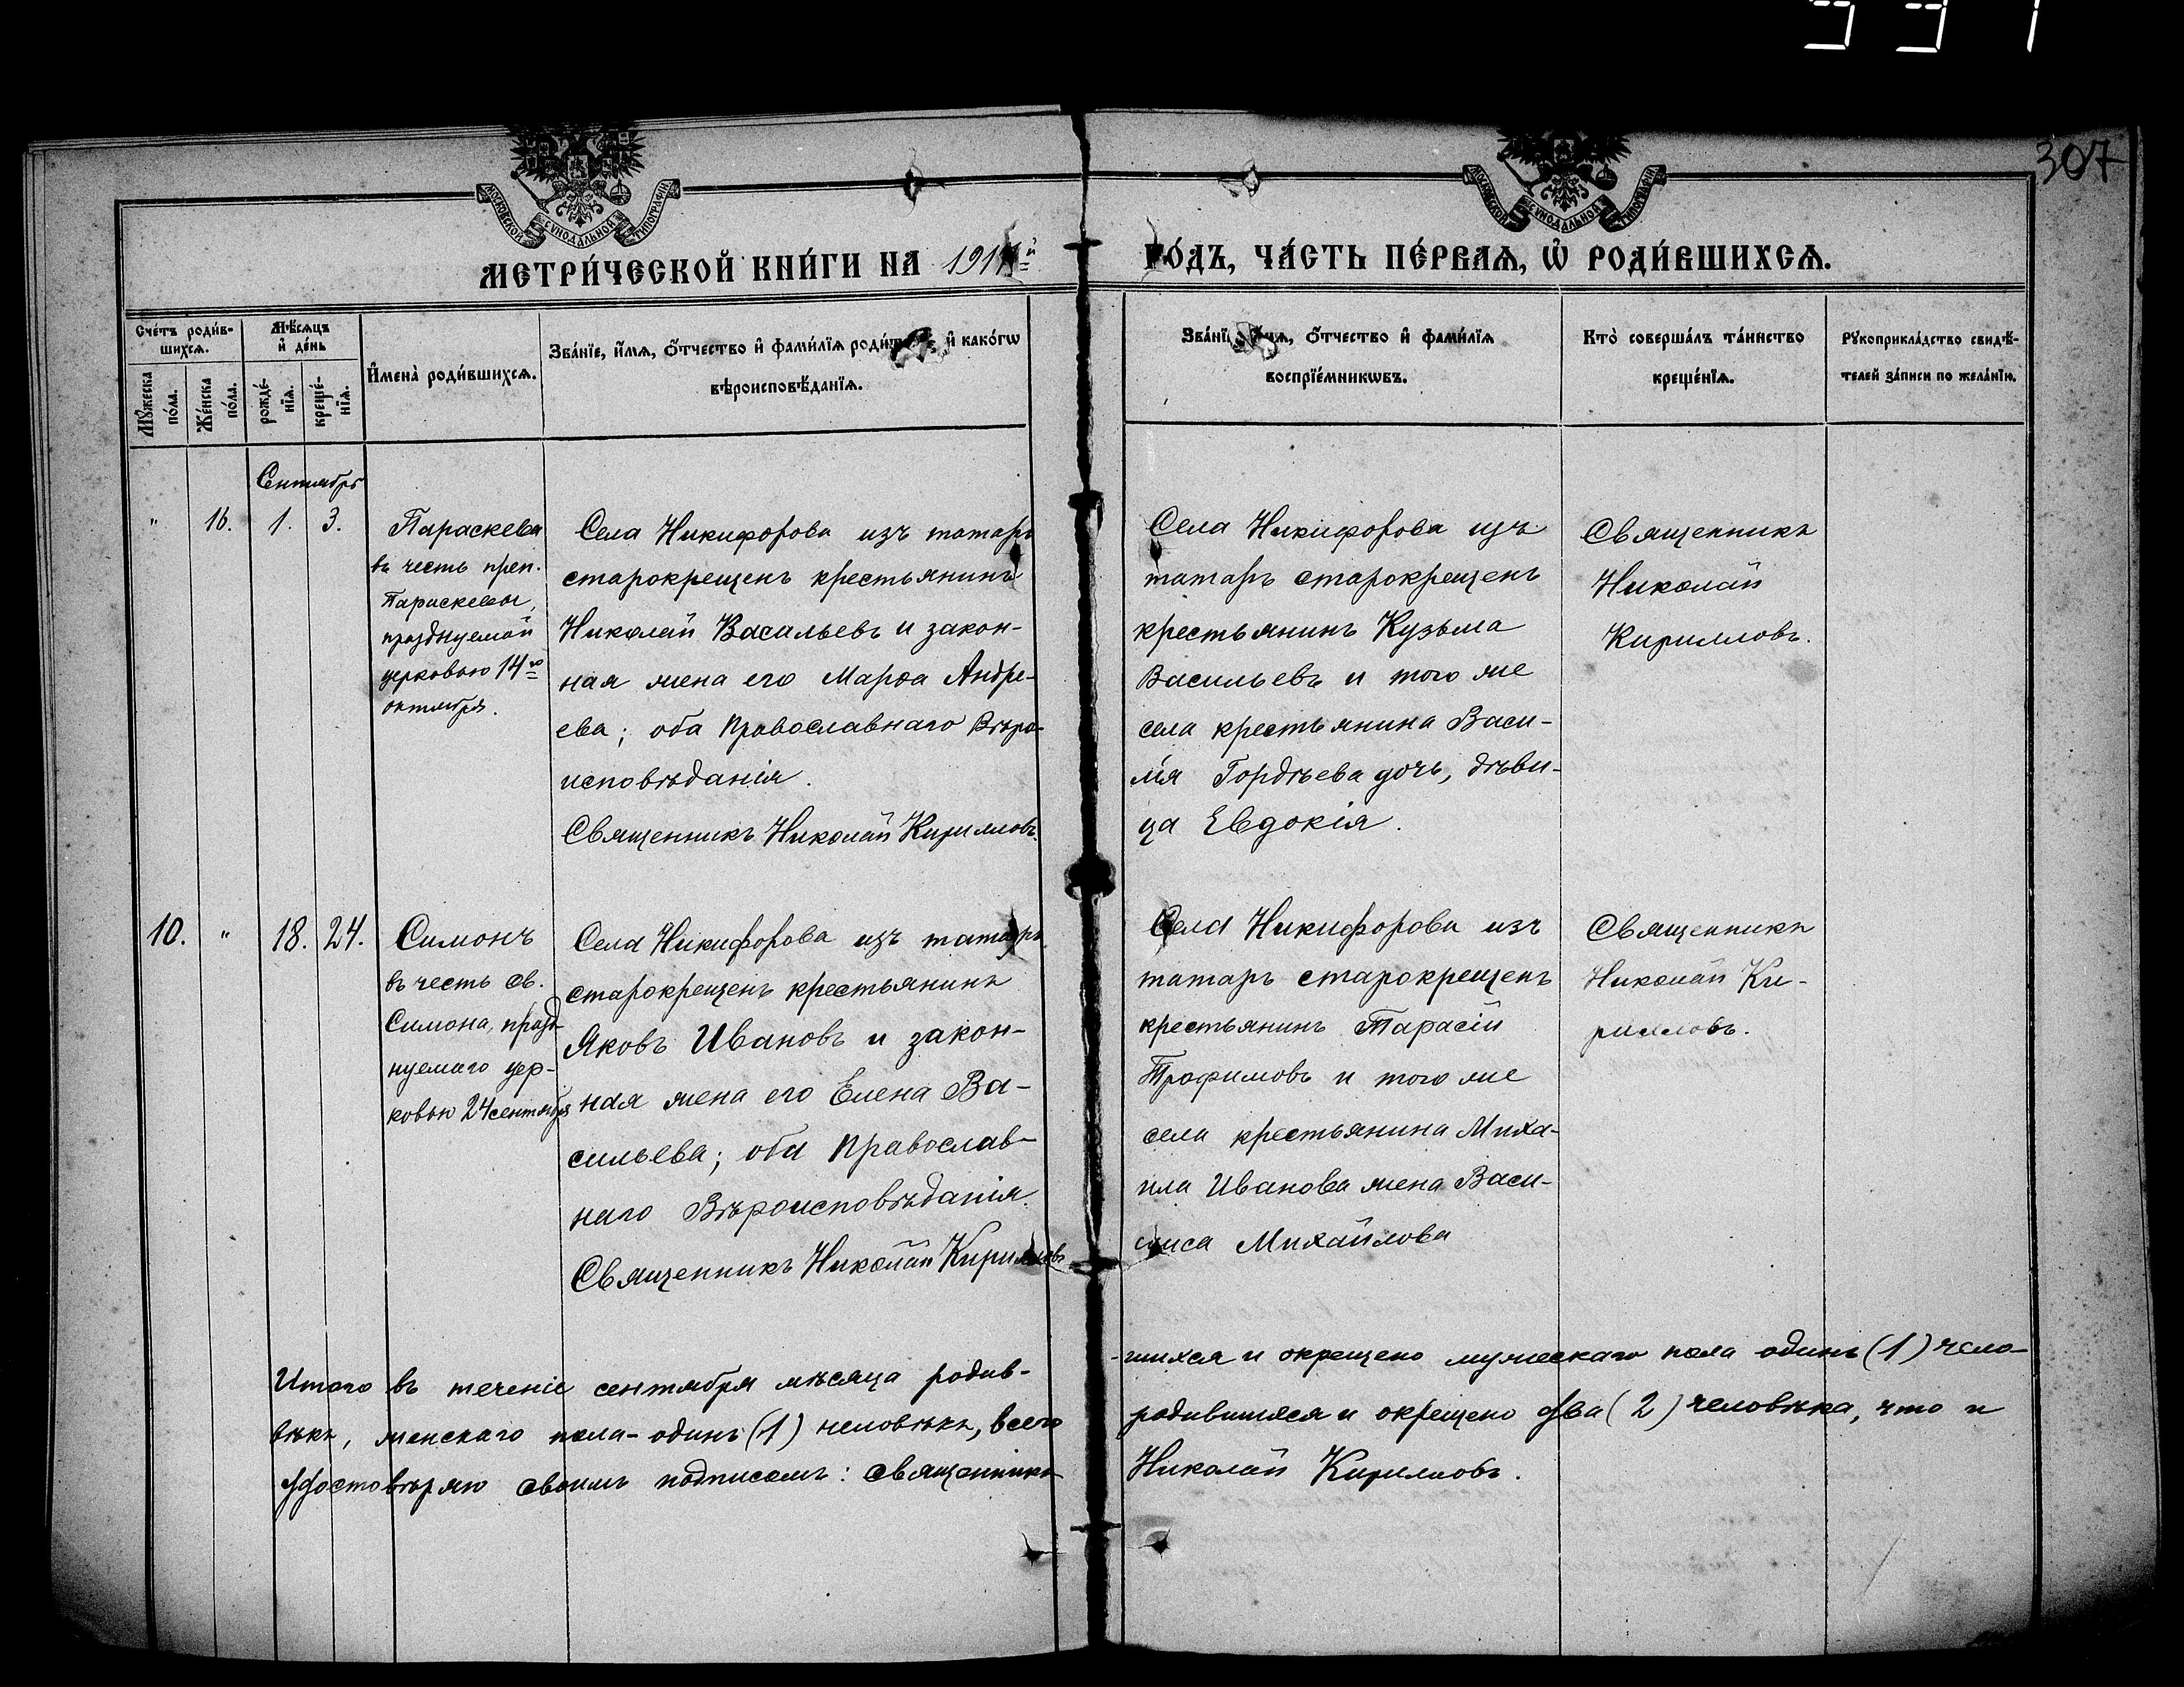 307
МОСКОВСКОЙ СѴНОДАЛЬНОЙ ТИПОГРАФІИ
МОСКОВСКОЙ СѴНОДАЛЬНОЙ ТИПОГРАФІИ
МЕТРИ́ЧЕСКОЙ КНИ́ГИ НА
ГО́ДЪ, ЧА́СТЬ ПЕ́РВАЯ, Ѡ҆ РОДИ́ВШИХСЯ.
Сче́тъ роди́в-
шихся.
Мѣ́сяцъ
и҆ де́нь
Мꙋ́жеска
по́ла.
Же́нска
по́ла.
рожде́-
нїя.
креще́-
нїя.
И҆мена̀ роди́вшихся.
Зва́нїе, и҆́мя, ѻ҆́тчество и҆ фами́лїя и҆ како́гѡ
вѣроисповѣ́данїя.
ѻ҆́тчество и҆ фами́лїя
воспрїе́мникѡвъ.
Кто̀ соверша́лъ та́инство
креще́нїя.
Рꙋкоприкла́дство свидѣ́-
телей за́писи по жела́нїю.
Сентябрь
" 16. 1. 3.
Параскева
въ честь преп.
Параскевы,
празднуемой
церковью 14го
октября.
Села Никифорова изъ татаръ
старокрещенъ крестьянинъ
Николай Васильевъ и закон-
ная жена его Марѳа Андре-
ева; оба Православнаго Вѣро-
исповѣданія.
Священникъ Николай Кирилловъ.
Села Никифорова изъ
татаръ старокрещенъ
крестьянинъ Кузьма
Васильевъ и того же
села крестьянина Васи-
лія Гордѣева дочь, дѣви-
ца Евдокія.
Священникъ
Николай
Кирилловъ.
10. " 18. 24.
Симонъ
въ честь св.
Симона, празд-
нуемаго цер-
ковью 24 сентября
Села Никифорова изъ татаръ
старокрещенъ крестьянинъ
Яковъ Ивановъ и закон-
ная жена его Елена Ва-
сильева; оба Православ-
наго Вѣроисповѣданія.
Священникъ Николай Кирилловъ
Села Никифорова изъ
татаръ старокрещенъ
крестьянинъ Тарасій
Трофимовъ и того же
села крестьянина Миха-
ила Иванова жена Васи-
лиса Михайлова
Священникъ
Николай Ки-
рилловъ.
Итого въ теченіе сентября мѣсяца родив-
-шихся и окрещено мужескаго пола одинъ (1) чело-
вѣкъ, женскаго пола - одинъ (1) человѣкъ, всего
родившихся и окрещено два (2) человѣка, что и
удостовѣряю своимъ подписомъ: священникъ
Николай Кирилловъ.